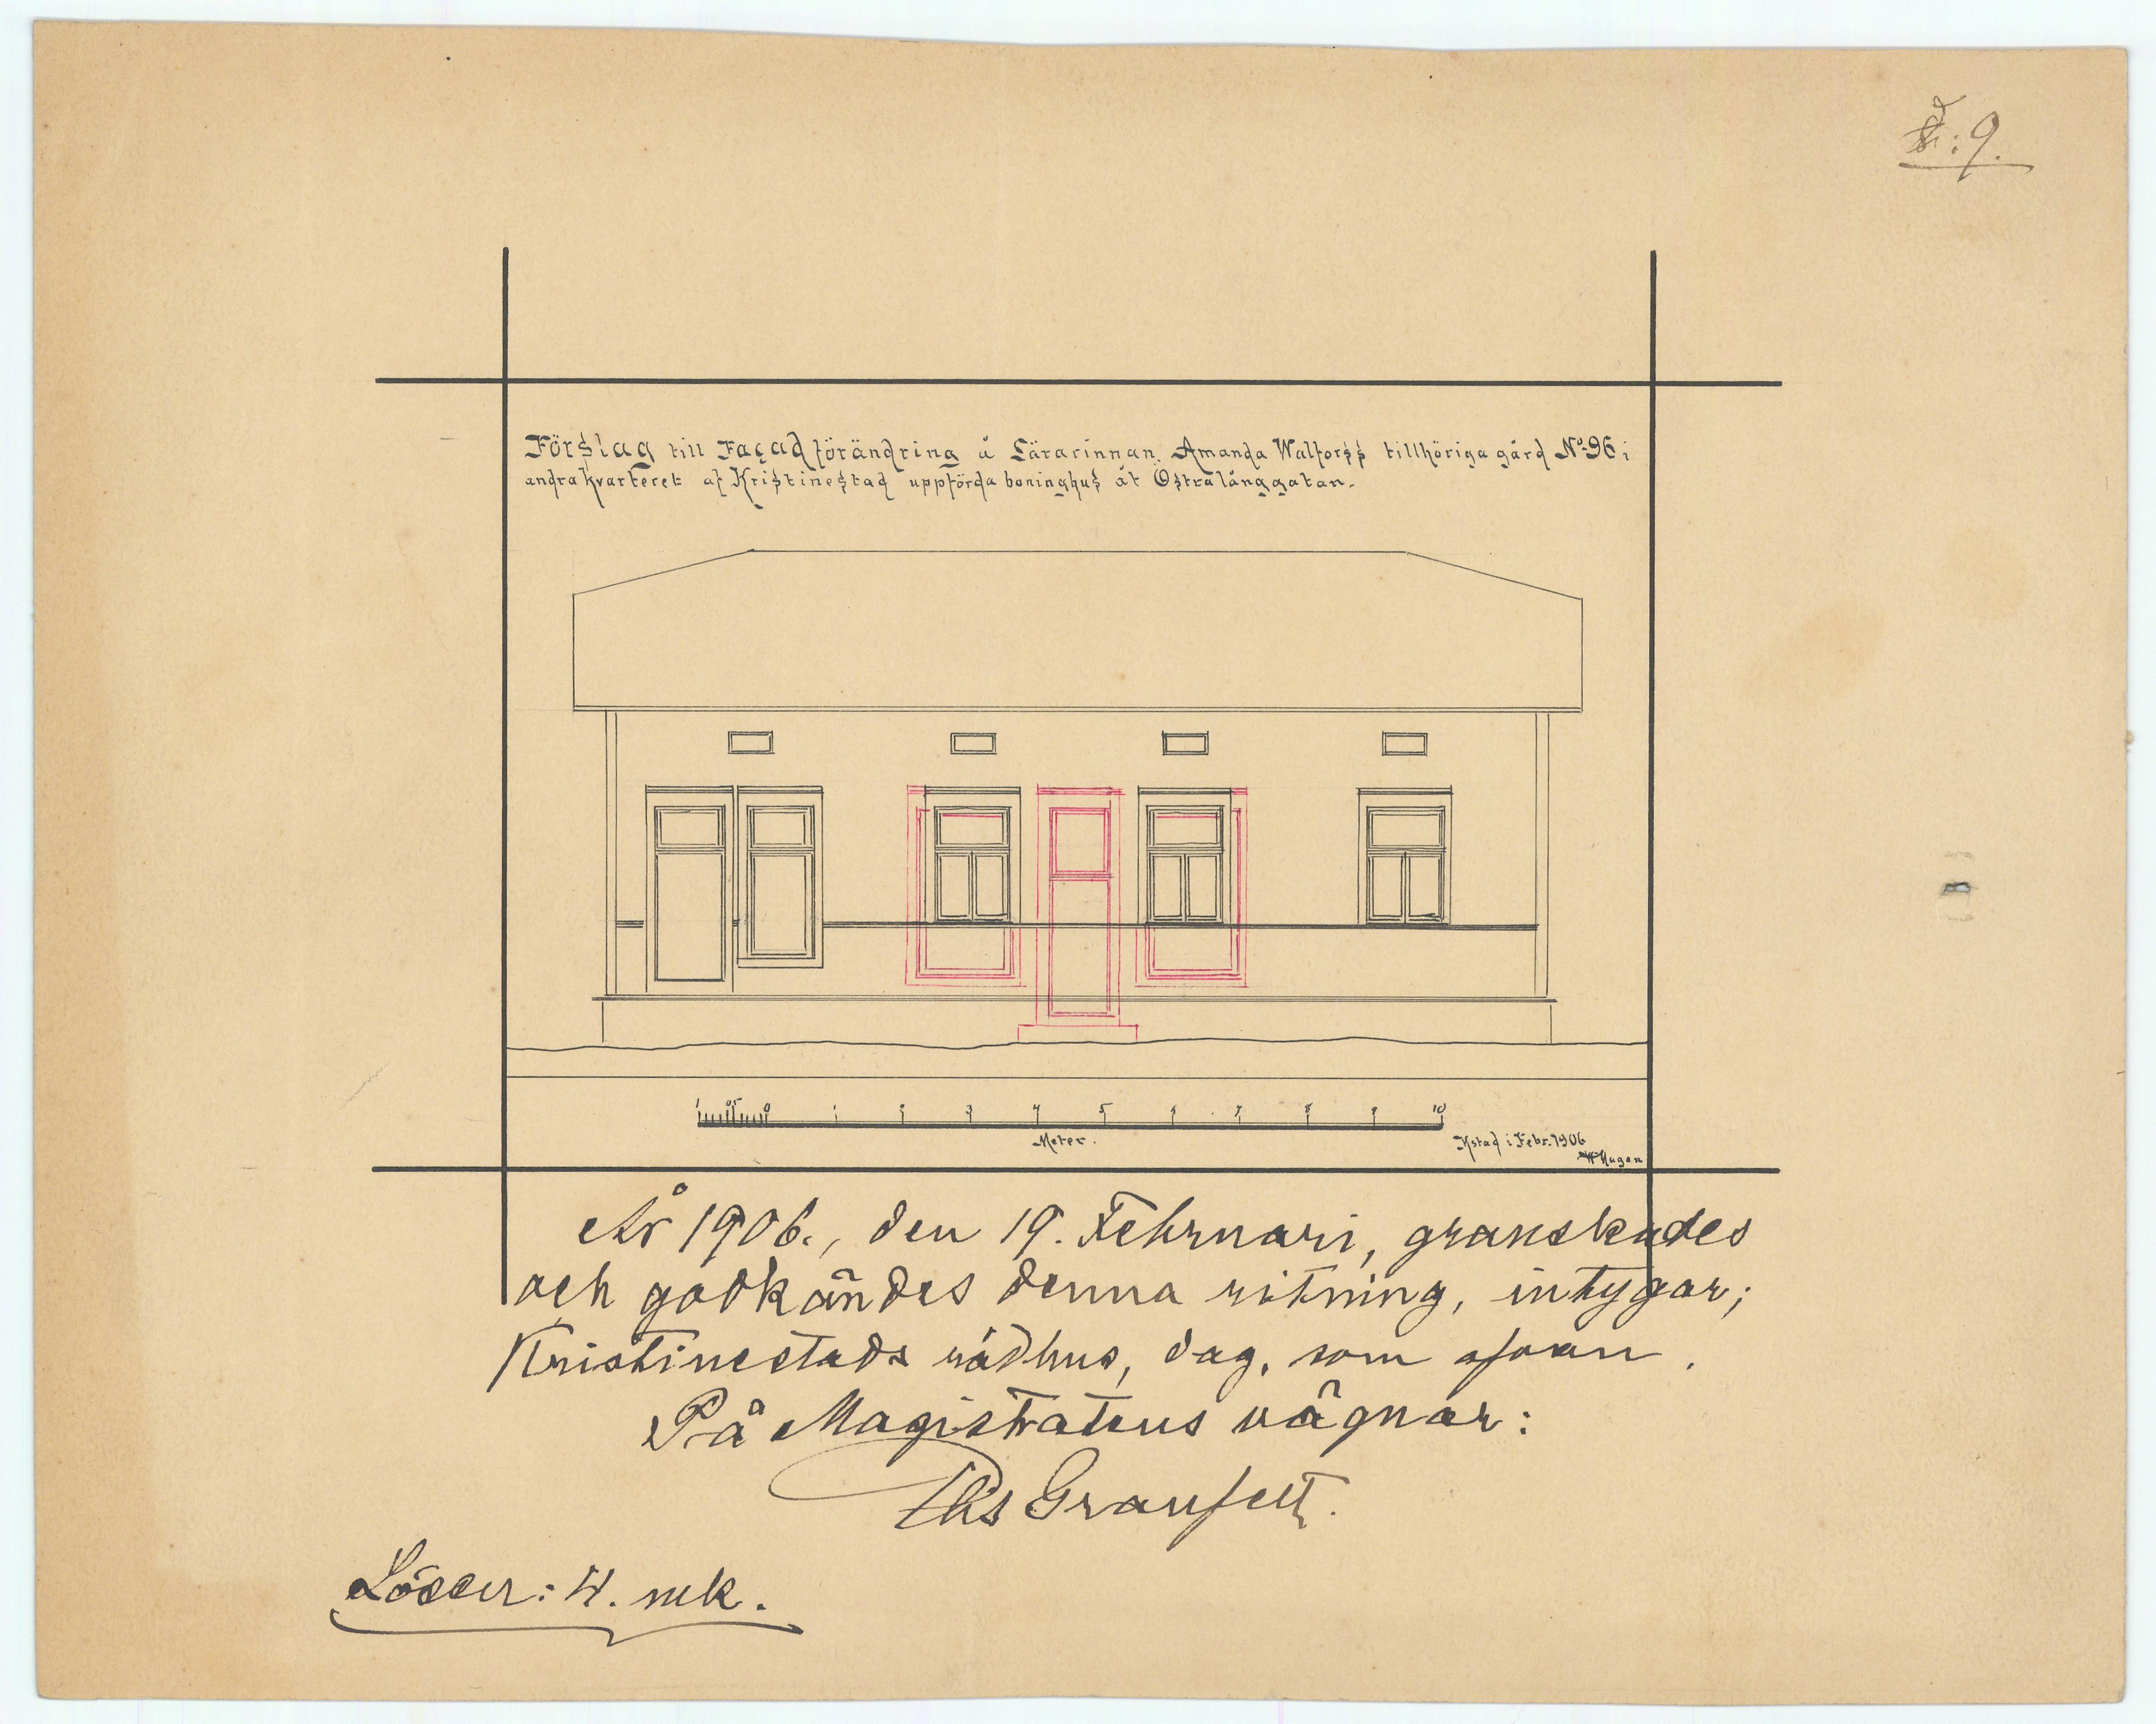 : 9.
Förslag till Façadförändring å Lärarinnan Amanda Walforss tillhöriga gård No 96 i
andra kvarteret af Kristinestad uppförda boninghus åt Östralånggatan.
1 0,5 0 1 2 3 4 5 6 7 8 9 10
Meter.
Kstad i Febr. 1906
År 1906., den 19. Februari, granskades
och godkändes denna ritning, intygar;
Kristinestads rådhus, dag, som ofvan.
På Magistratens vägnar:
Ths Granfelt.
Lösen: 4. mk.